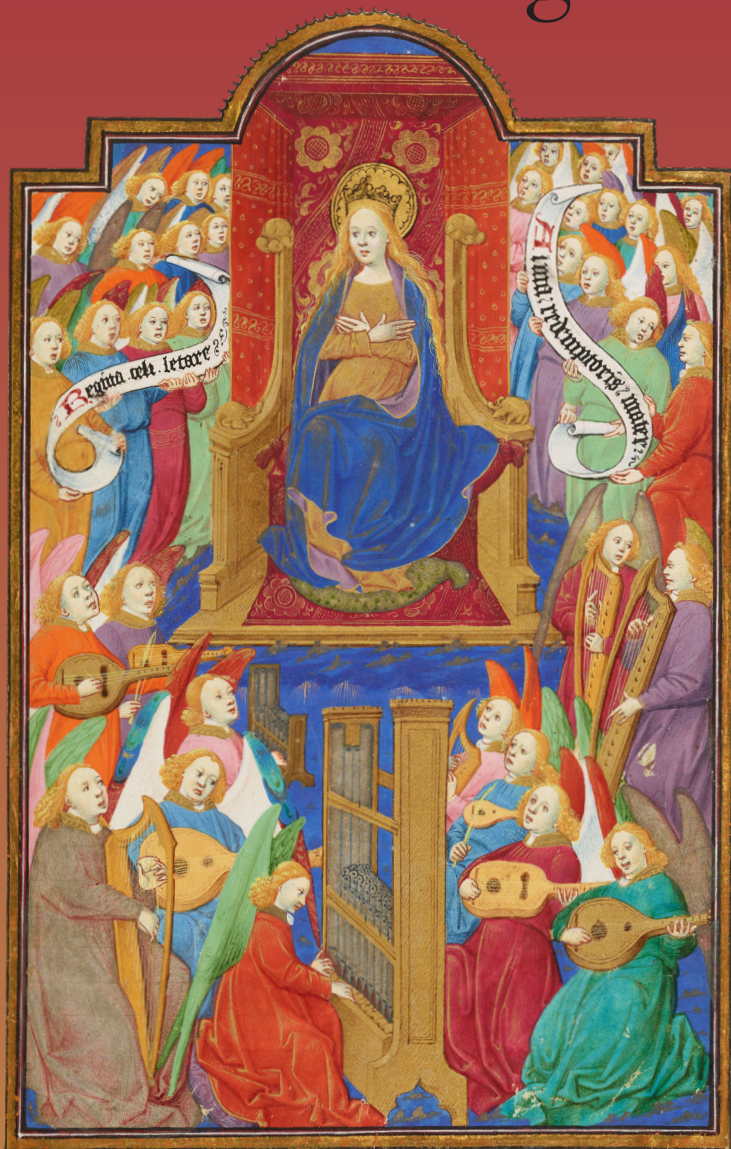 g
Regina celi letare
Alma redemptoris mater